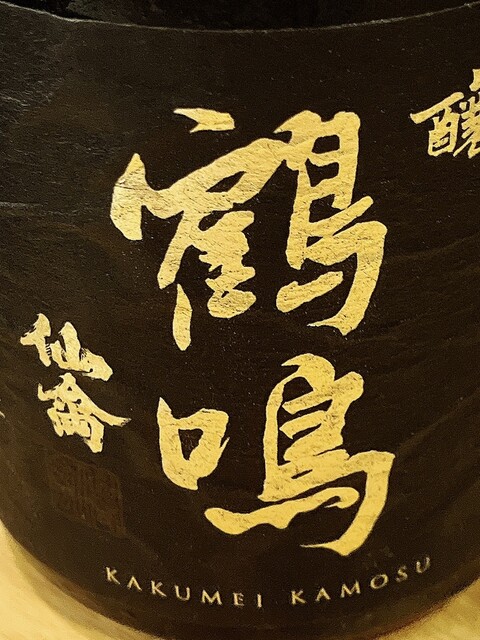 醸
鶴鳴
仙禽
KAKUMEI KAMOSU